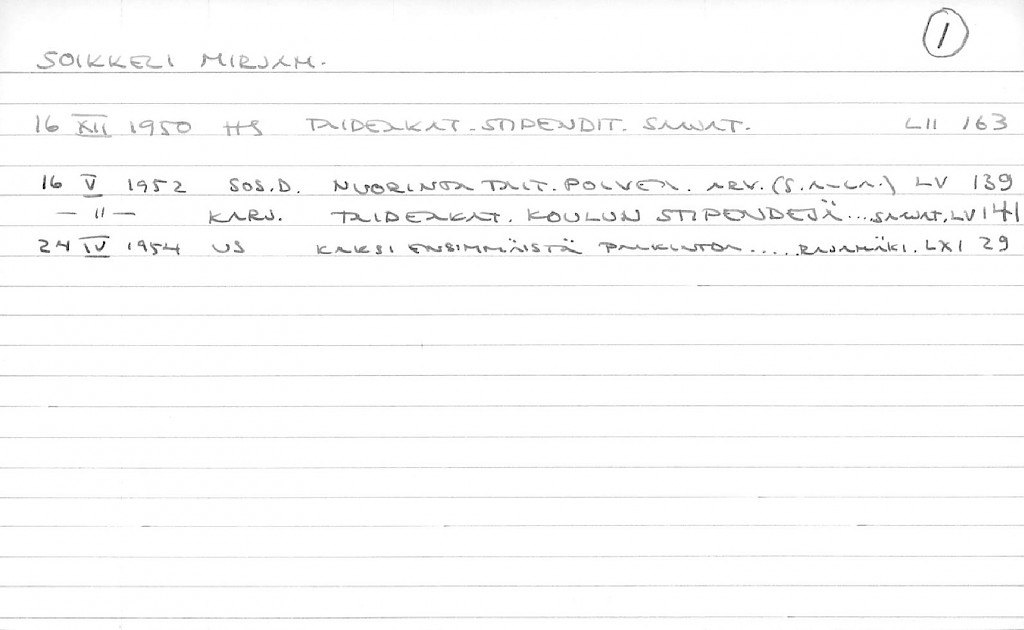 1
SOIKKELI MIRJAM.
16 XII 1950 HS TAIDEAKAT. STIPENDIT. SAIVAT. LII 163
16 V 1952 SOS.D. NUORINTA TAIT. POLVEA. ARV. (S. A-LA.) LV 139
— " — KARJ. TAIDEAKAT. KOULUN STIPENDEJÄ ... SAIVAT. LV 141
24 IV 1954 US KAKSI ENSIMMÄISTÄ PALKINTOA ..... RAJAMÄKI. LXI 29